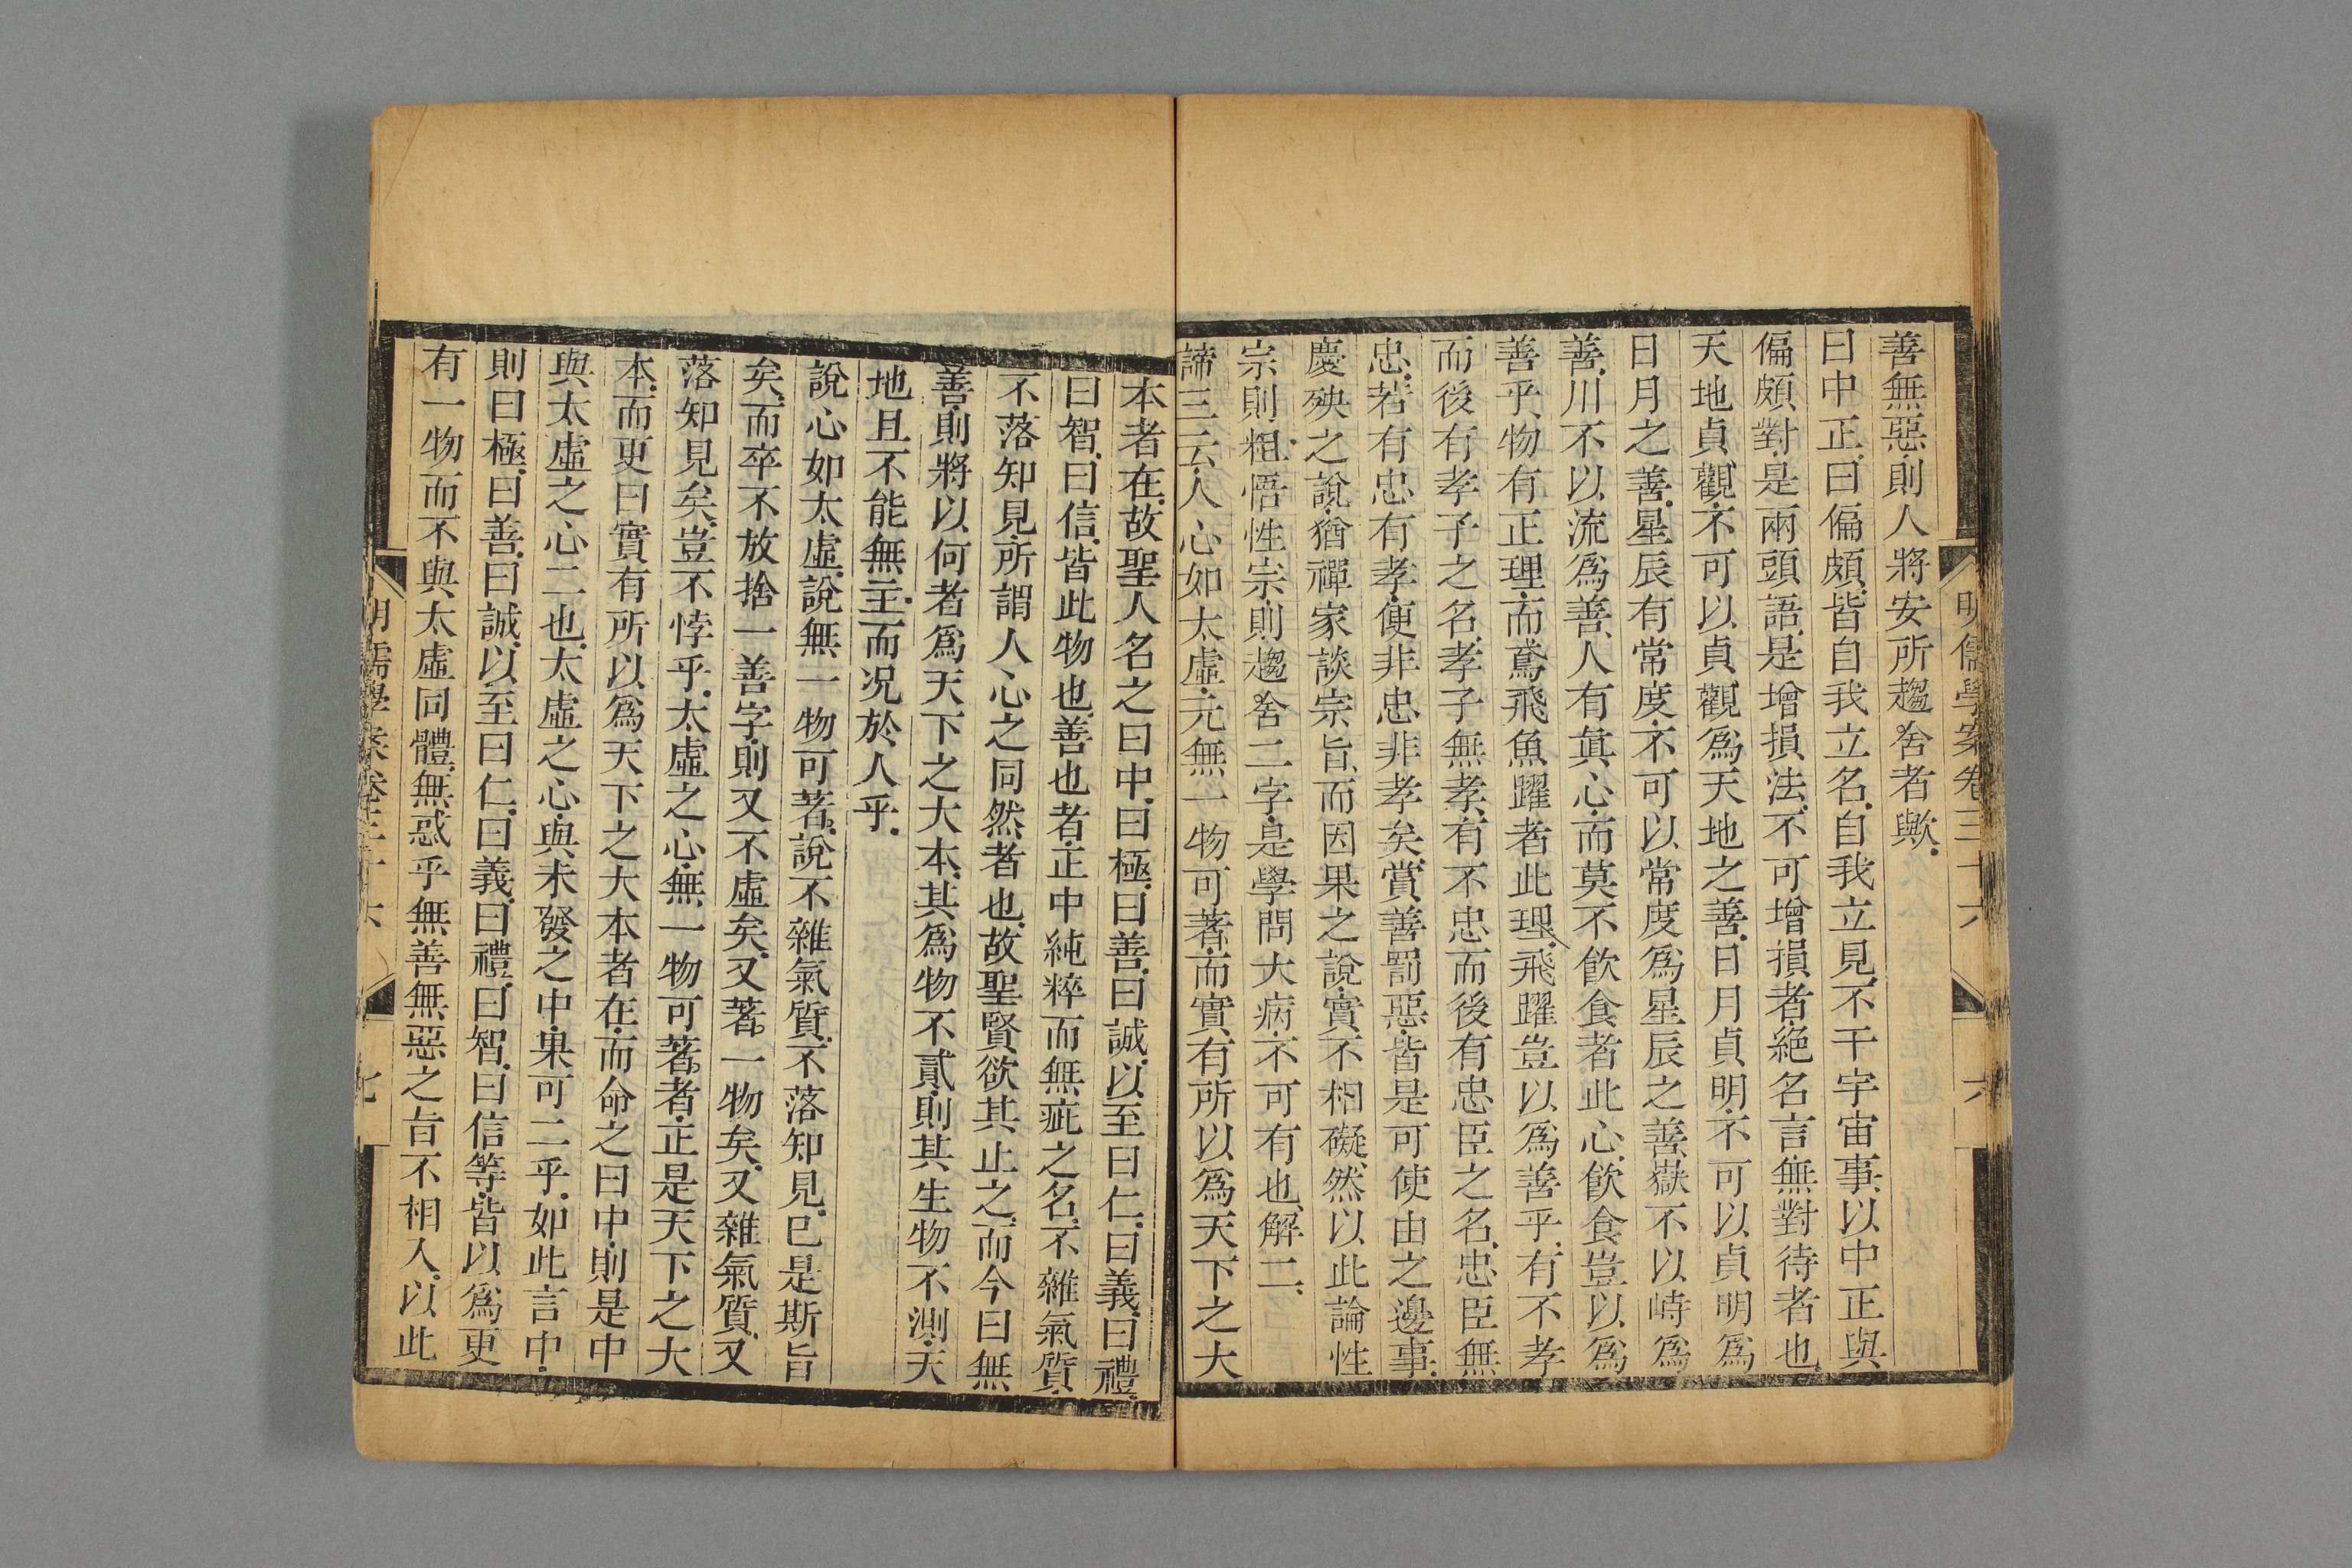 明儒學案卷三十六
六
善無惡則人將安所趨舍者歟
曰中正曰偏頗皆自我立名自我立見不干宇宙事以中正與
偏頗對是兩頭語是增損法不可增損者絕名言無對待者也
天地貞觀不可以貞觀爲天地之善日月貞明不可以貞明爲
日月之善星辰有常度不可以常度爲星辰之善嶽不以峙爲
善川不以流爲善人有眞心而莫不飮食者此心飮食豈以爲
善乎物有正理而鳶飛魚躍者此理飛躍豈以爲善乎有不孝
而後有孝子之名孝子無孝有不忠而後有忠臣之名忠臣無
忠若有忠有孝便非忠非孝矣賞善罰惡皆是可使由之邊事
慶殃之說猶禪家談宗旨而因果之說實不相礙然以此論性
宗則粗悟性宗則趨舍二字是學問大病不可有也解二
諦三云人心如太虛元無一物可著而實有所以爲天下之大
本者在故聖人名之曰中曰極曰善曰誠以至曰仁曰義曰禮
曰智曰信皆此物也善也者正中純粹而無疵之名不雜氣質
不落知見所謂人心之同然者也故聖賢欲其止之而今曰無
善則將以何者爲天下之大本其爲物不貳則其生物不測天
地且不能無主而况於人乎
說心如太虛說無一物可著說不雜氣質不落知見已是斯旨
矣而卒不放捨一善字則又不虛矣又著一物矣又雜氣質又
落知見矣豈不悖乎太虛之心無一物可著者正是天下之大
本而更曰實有所以爲天下之大本者在而命之曰中則是中
與太虛之心二也太虛之心與未發之中果可二乎如此言中
則曰極曰善曰誠以至曰仁曰義曰禮曰智曰信等皆以爲更
有一物而不與太虛同體無惑乎無善無惡之旨不相入以此
明儒學案卷三十六
七